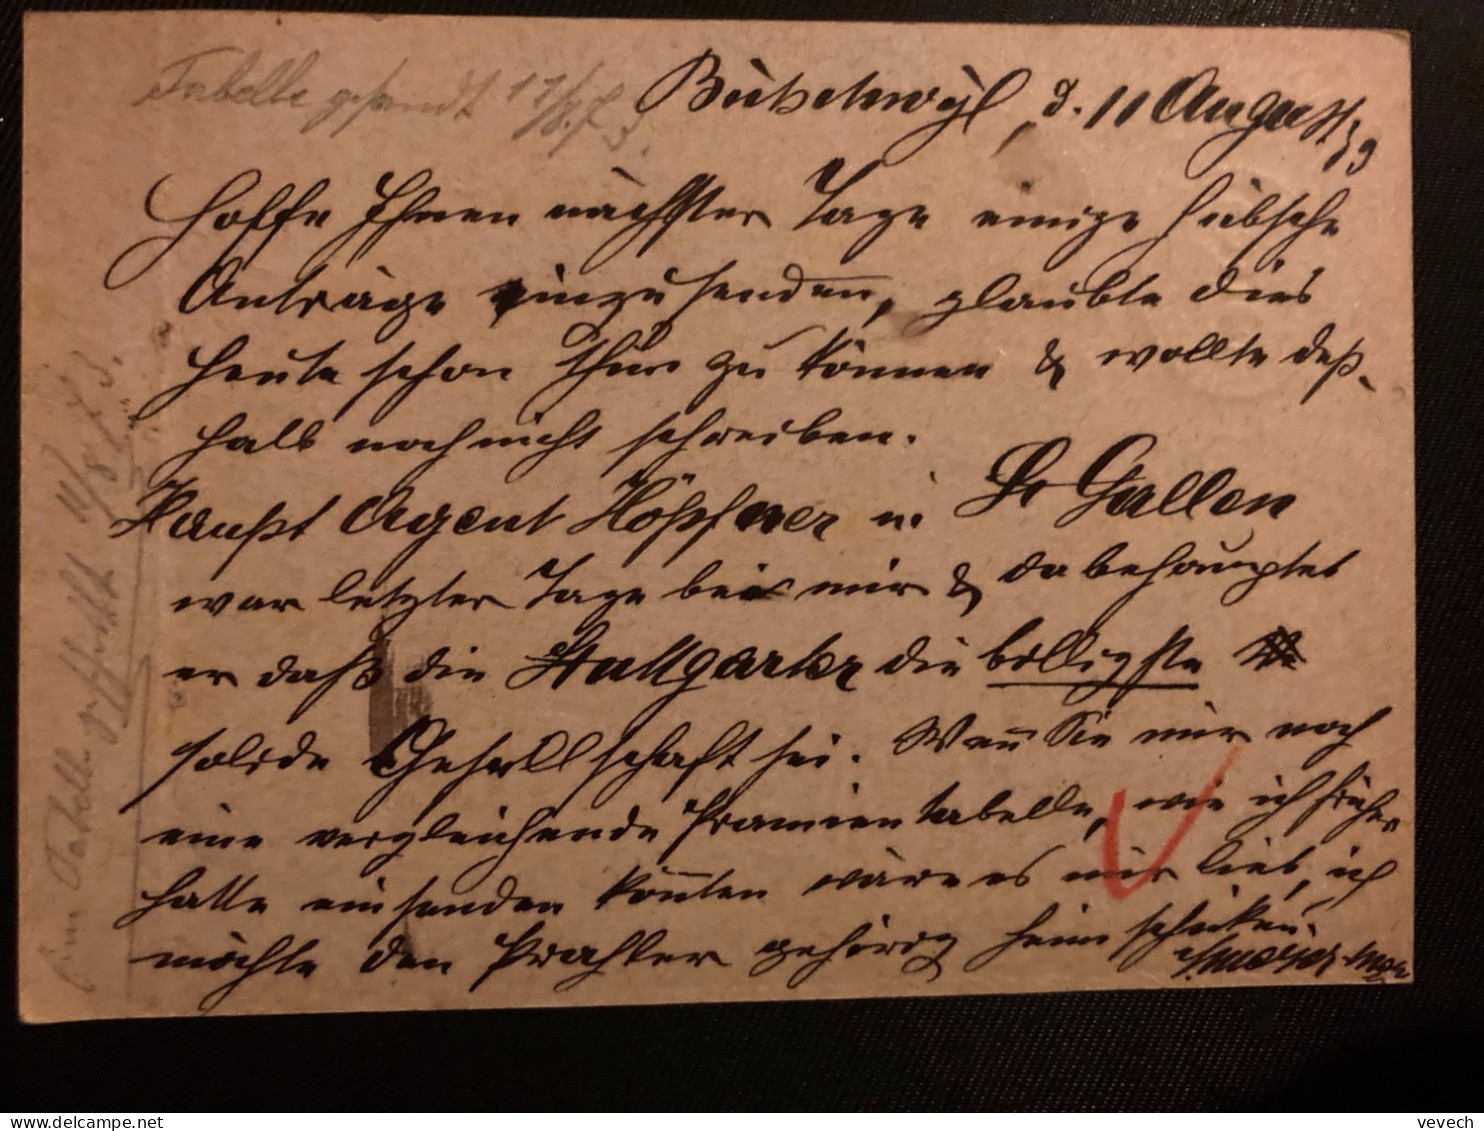 Tabelle gesandt 17/8.73.
Bütschwyl, d. 11 August 73
Hoffe Ihnen nächster Tage einige hübsche
Anträge einzusenden, glaubte dies
heute schon thun zu können & wollte deß-
halb noch nicht schreiben.
Haupt Agent Höpfner in St Gallen
war letzter Tage bei mir & da behauptet
er daß die Stuttgarter die billigste
solide Gesellschaft sei. Wenn Sie mir noch
eine vergleichende Prämientabelle, wie ich früher
hatte einsenden könnten wäre es mir lieb, ich
möchte den Prahler gehörig heim schicken.
Tabelle 11/8 73.
vevech